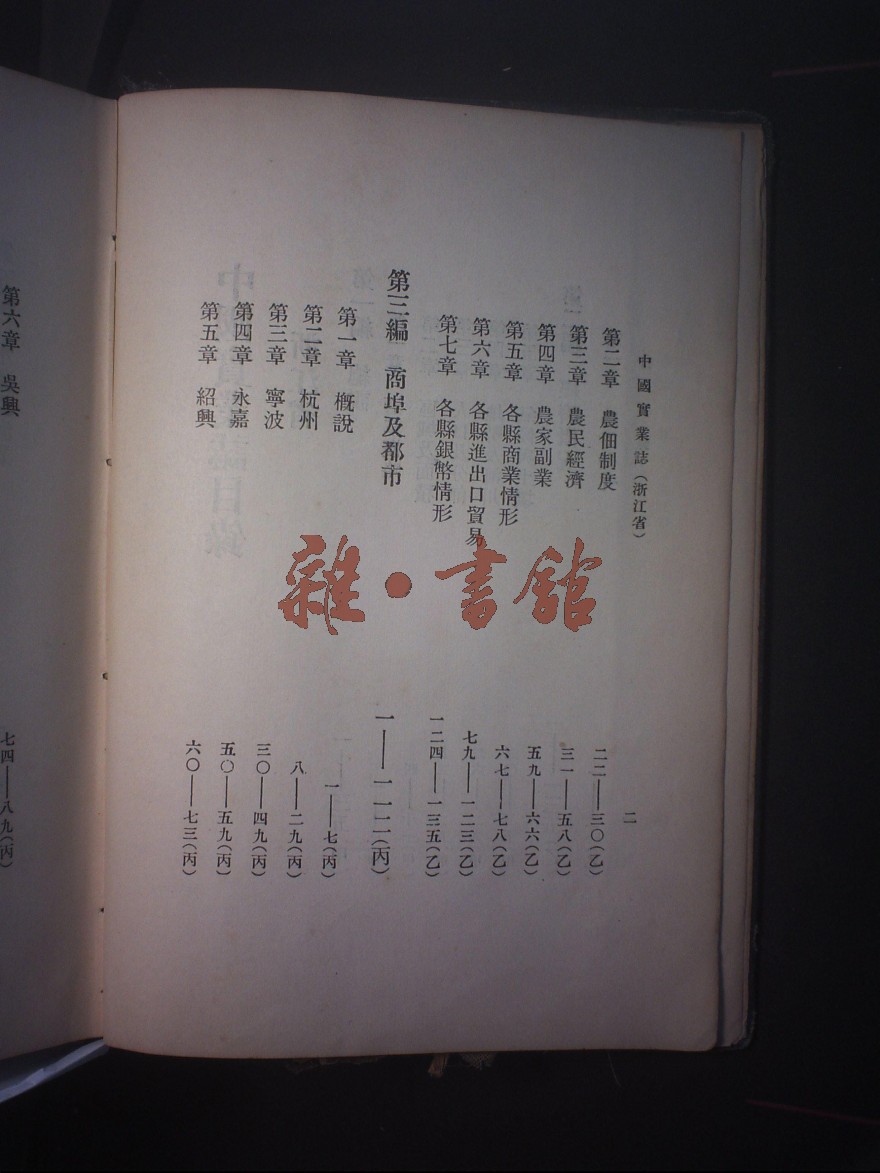 中國實業誌(浙江省)
二
第二章 農佃制度 二二——三〇(乙)
第三章 農民經濟 三一——五八(乙)
第四章 農家副業 五九——六六(乙)
第五章 各縣商業情形 六七——七八(乙)
第六章 各縣進出口貿易 七九——一二三(乙)
第七章 各縣銀幣情形 一二四——一三五(乙)
第三編 商埠及都市 一——一一二(丙)
第一章 概說 一——七(丙)
第二章 杭州 八——二九(丙)
第三章 寧波 三〇——四九(丙)
第四章 永嘉 五〇——五九(丙)
第五章 紹興 六〇——七三(丙)
第六章 吳興 七四——八九(丙)
雜·書館